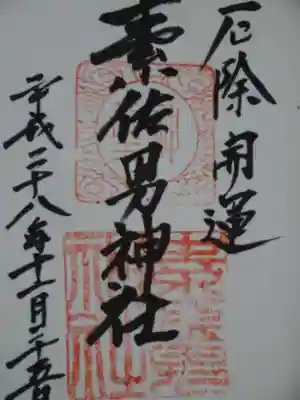 厄除開運
素佐男神社
平成二十八年十二月二十五日